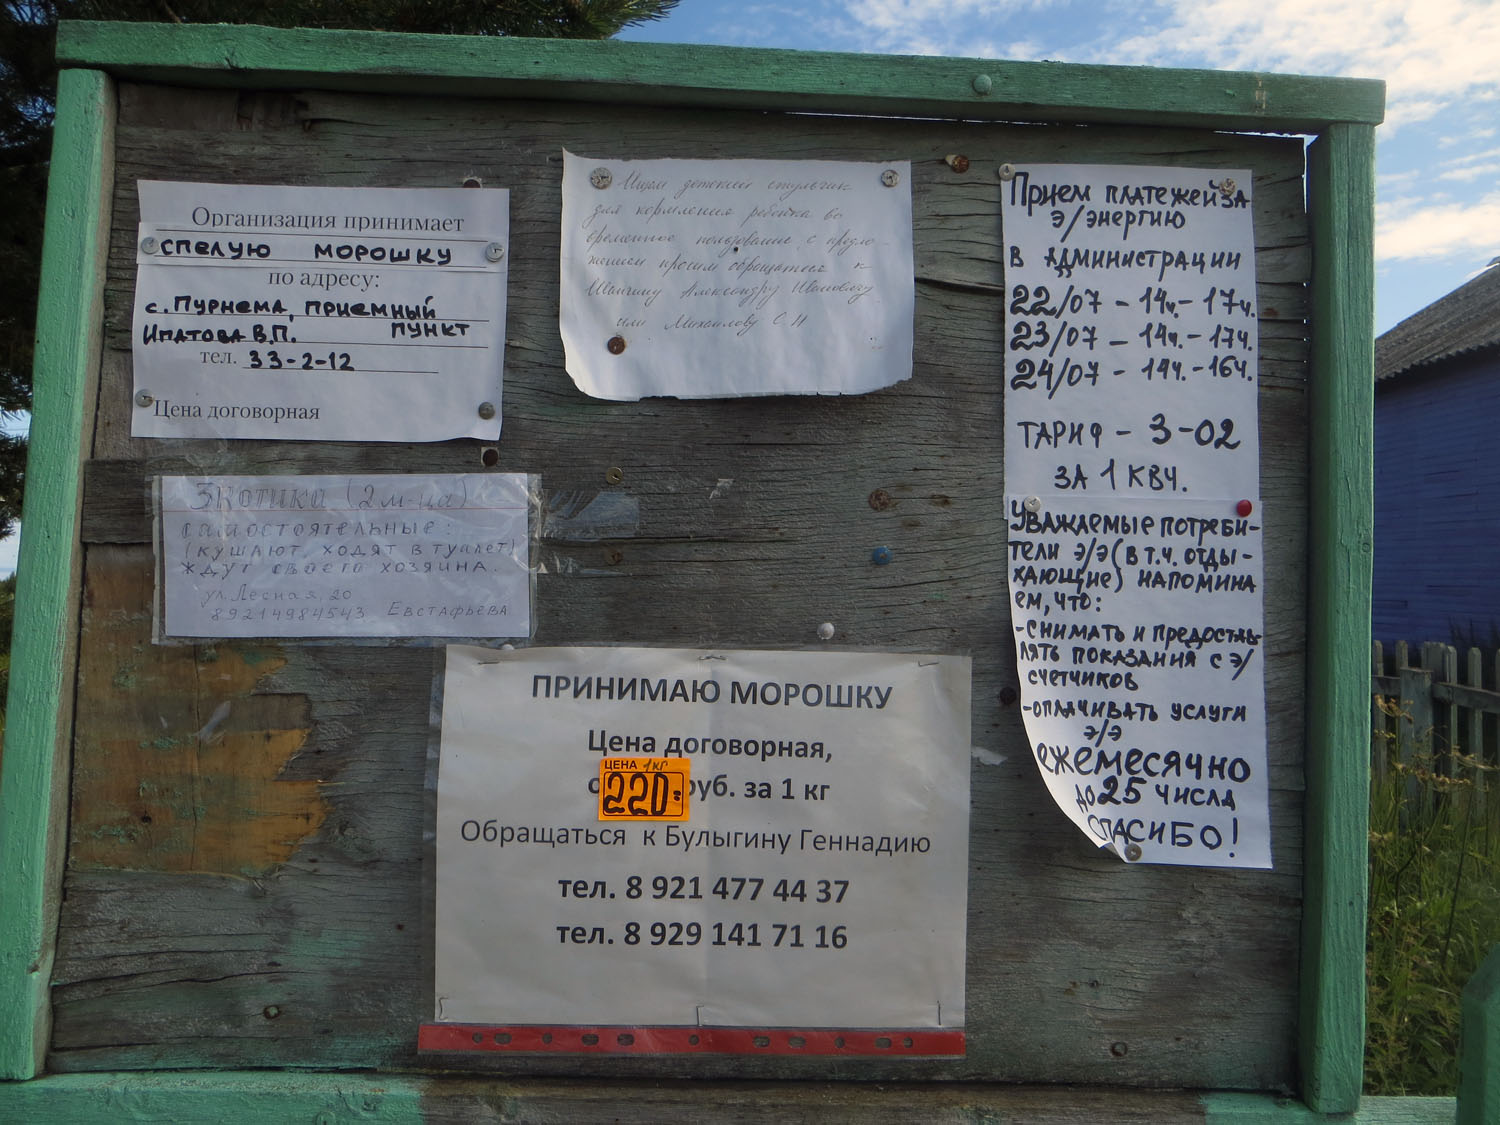 Организация принимает
спелую морошку
по адресу:
с. Пурнема, приемный
Ипатова В.П. пункт
тел. 33-2-12
Цена договорная
Ищем детский стульчик
для кормления ребёнка во
временное пользование, с предло-
жением просим обращаться к
Александру Ивановичу
или Михайлову С.Н
Прием платежей за
э/энергию
в администрации
22/07 - 14ч. - 17ч.
23/07 - 14ч. - 17ч.
24/07 - 14ч. - 16ч.
Тариф - 3-02
за 1 квч.
Уважаемые потреби-
тели э/э (в т.ч. отды-
хающие) напомина
ем, что:
- снимать и предостав-
лять показания с э/
счетчиков
- оплачивать услуги
э/э
ежемесячно
до 25 числа
Спасибо!
3 котика (2 м-ца)
самостоятельные:
(кушают, ходят в туалет)
ждут своего хозяина.
ул. Лесная, 20
89214984543 Евстафьева
ПРИНИМАЮ МОРОШКУ
Цена договорная,
ЦЕНА 1кг
220= руб. за 1 кг
Обращаться к Булыгину Геннадию
тел. 8 921 477 44 37
тел. 8 929 141 71 16